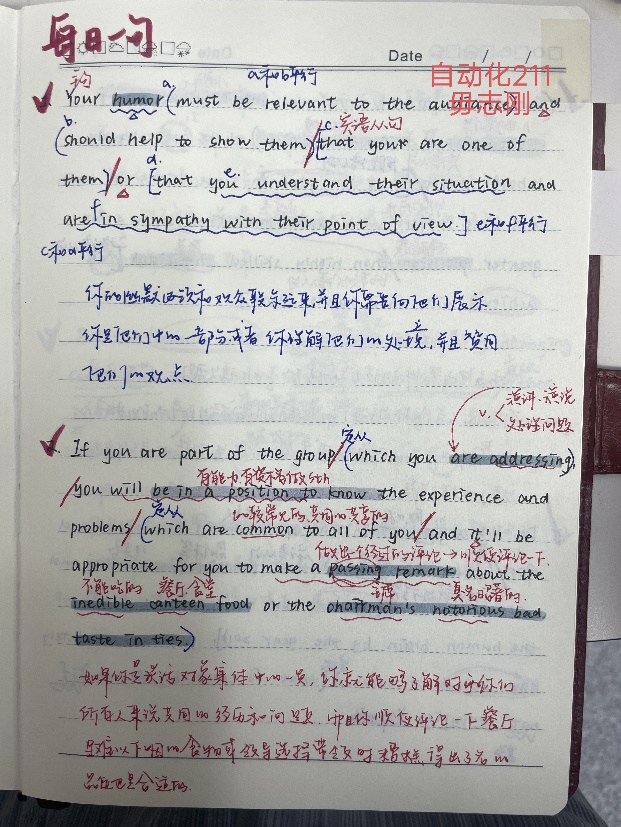 每日一问
Date / /
自动化211
毋志刚
主句 a. a和b平行
1. Your humor (must be relevant to the audience) and
b. c. 宾语从句
(should help to show them) (that your are one of
d. e.
them) or [that you understand their situation and
f
are in sympathy with their point of view.] e和f平行
c和d平行
你的幽默必须和观众联系起来,并且你需要向他们展示
你是他们中的一部分或者你理解他们的处境,并且赞同
他们的观点.
v. 演讲、演说
处理问题
定从
2. If you are part of the group (which you are addressing),
有能力有资本做sth
you will be in a position to know the experience and
定从 比较常见的,共同的共享的
problems (which are common to all of you and it'll be
做出个经过的评论→顺便评论一下.
appropriate for you to make a passing remark about the
不能吃的 餐厅.食堂 主席 臭名昭著的.
inedible canteen food or the chairman's notorious bad
taste in ties.)
如果你是谈话对象集体中的一员,你就能够了解对于你们
所有人来说共同的经历和问题,而且你顺便评论一下餐厅
难以下咽的食物或领导选择带领时糟糕得出了名的
品味也是合适的.